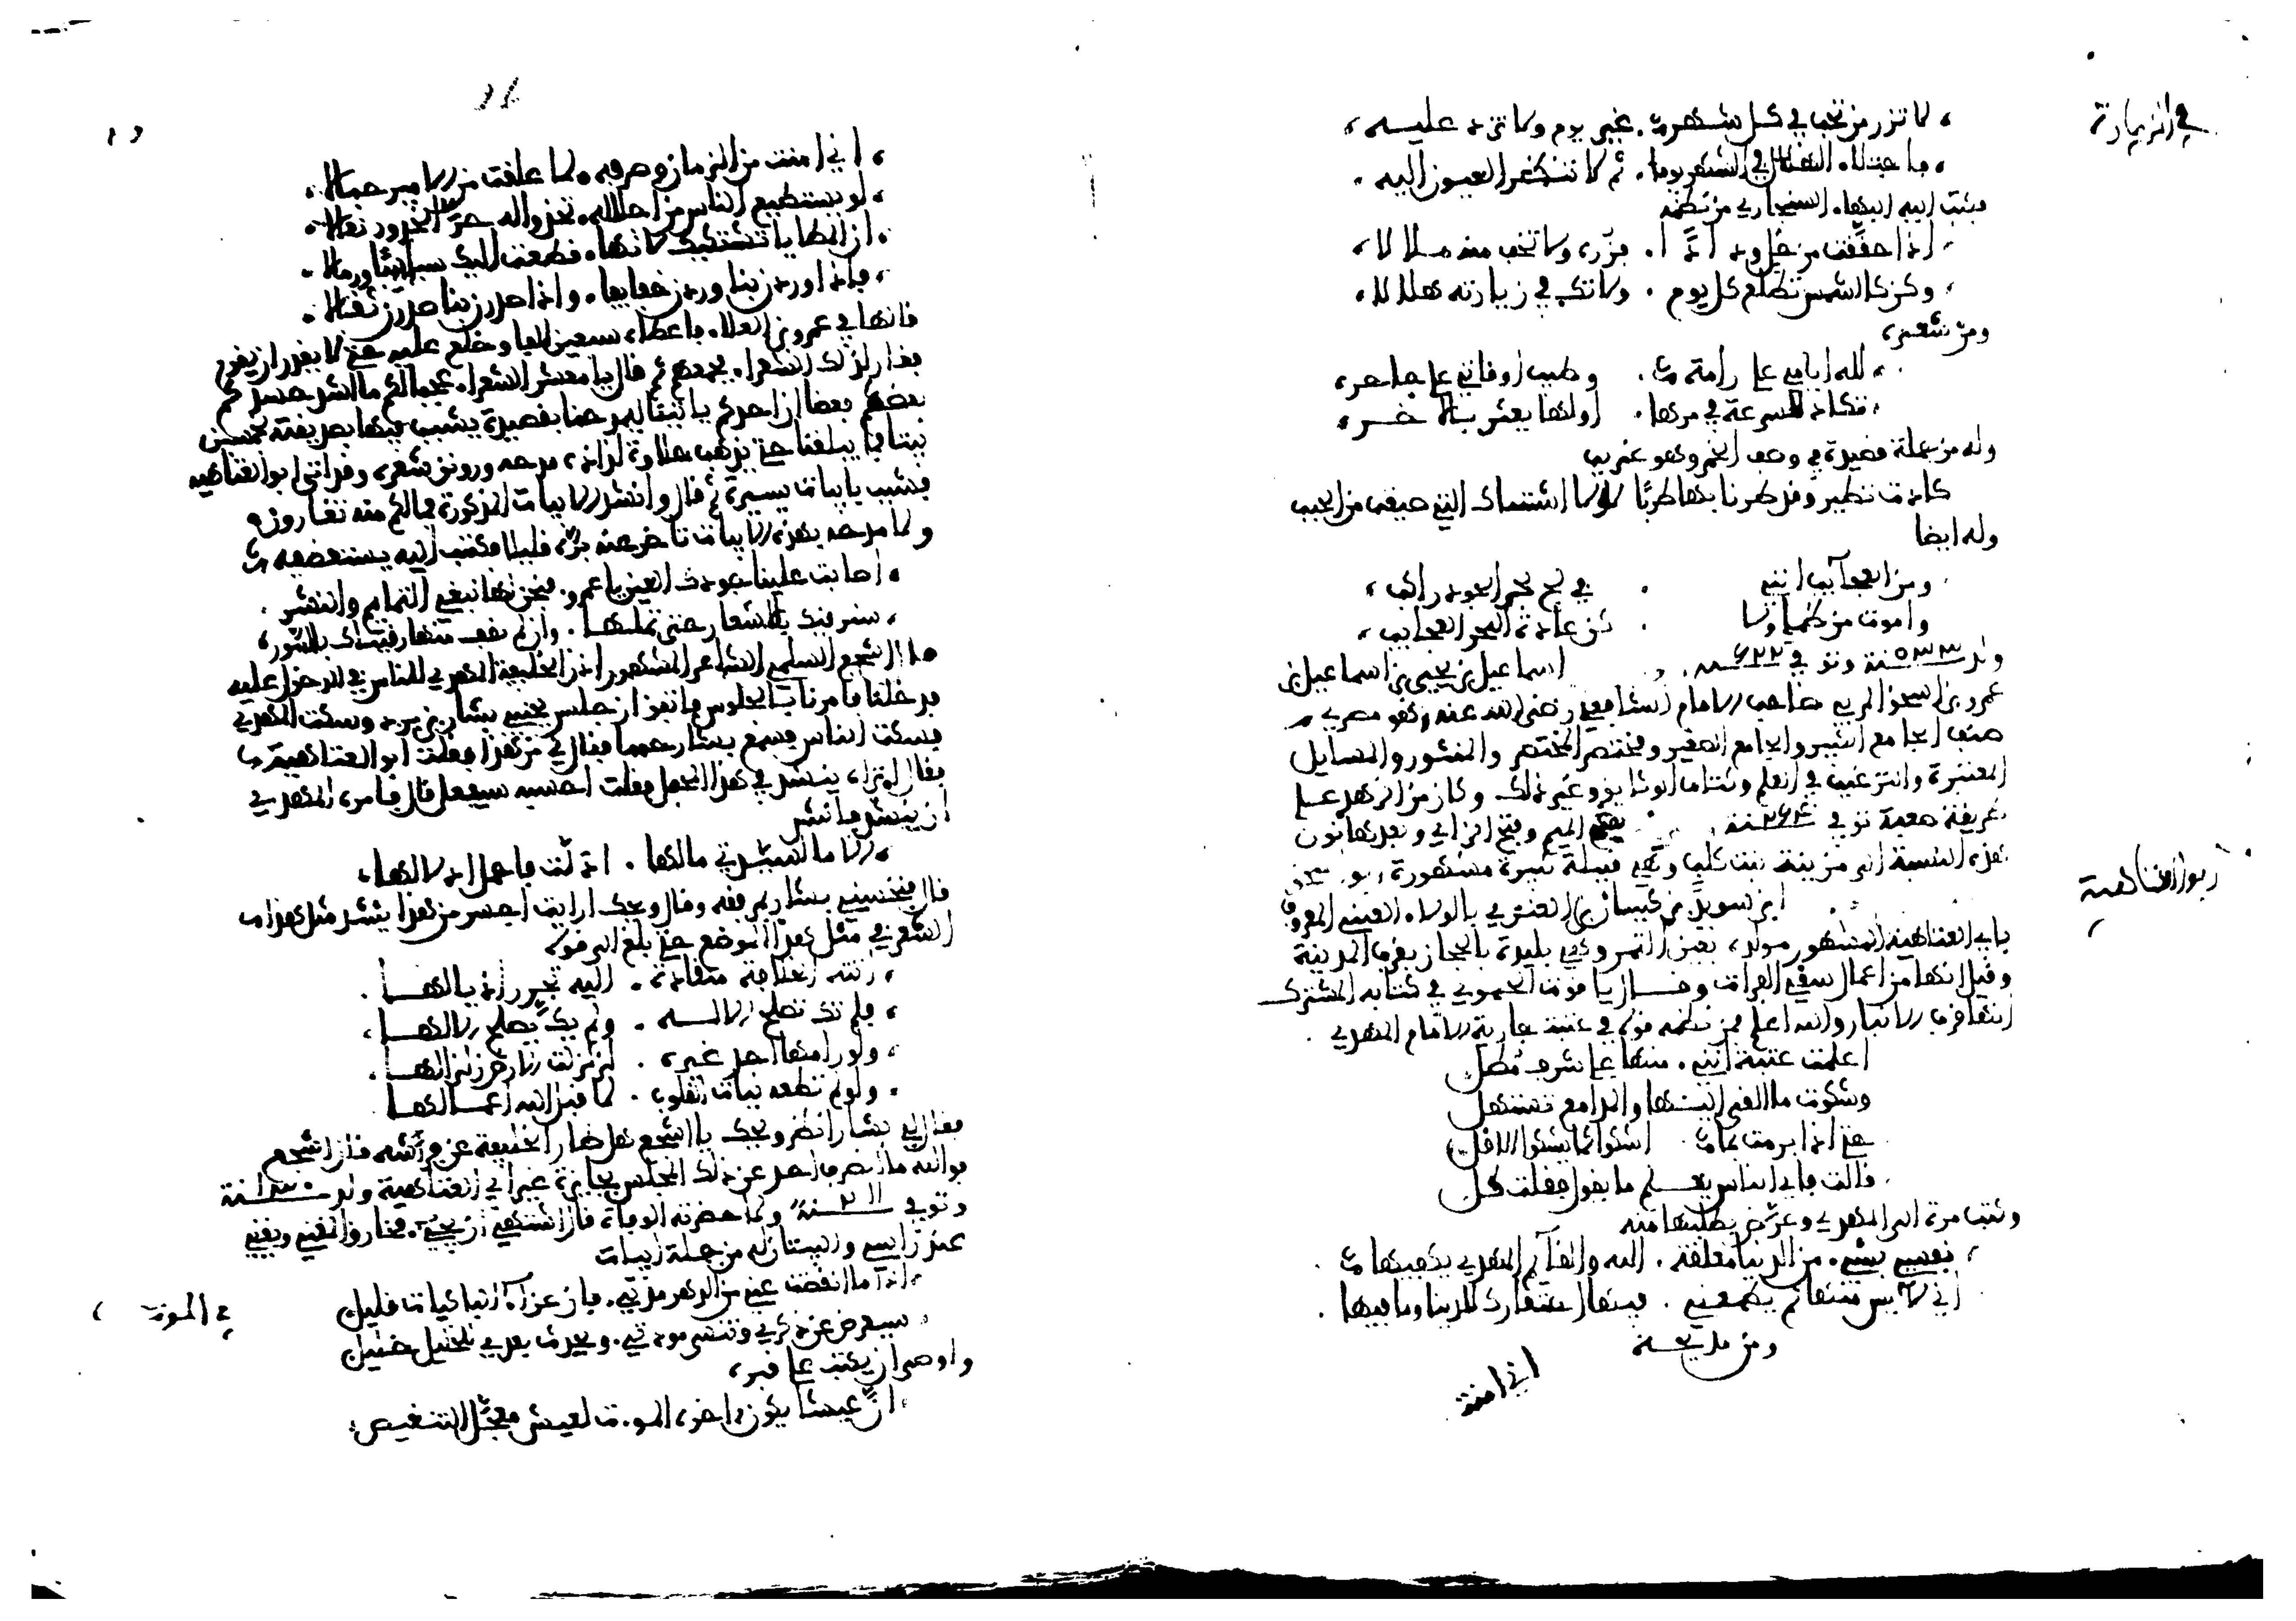 في الزيارة
لا تزر من تحب في كل شهر . غير يوم ولا تزد عليه
فاجتلاء الهلال في الشهر يوما . ثم لا تنظر العيون اليه
فكتب اليه البهاء السنجاري من نظمه
اذا حققت من خل ودادا . فزره ولا تخف منه ملالا
وكن كالشمس تطلع كل يوم . ولا تك في زيارته هلالا
ومن شعره
لله ايامي على رامة . وطيب اوقاتي على حاجر
تكاد للسرعة في مرها . اولها يعثر بالاخر
وله من جملة قصيدة في وصف الخمر وهو غريب
كادت تطير وقد طرنا بها طربا لولا الشباك التي صيغت من الحبب
وله ايضا
ومن العجايب انني . في لج بحر الجود راكب
واموت من ظماء ولا . كن عادة البحر العجايب
ولد سنة ٥٣٣ وتو في سنة ٦٢٢ . اسماعيل بن يحيى بن اسماعيل بن
عمرو بن اسحق المزني صاحب الامام الشافعي رضي الله عنه وهو مصري
صنف الجامع الكبير والجامع الصغير ومختصر المختصر والمنثور والمسايل
المعتبرة والترغيب في العلم وكتاب الوثايق وغير ذلك وكان من الزهد على
طريقة صعبة توفي سنة ٢٦٤ . بضم الميم وفتح الزاي وبعدها نون
هذه النسبة الى مزينة بنت كلب وهي قبيلة كبيرة مشهورة ابو
ابو العتاهية
ابن سويد بن كيسان العنزي بالولاء العيني المعروف
بابي العتاهية المشهور مولده بعين التمر وهي بليدة بالحجاز بقرب المدينة
وقيل انها من اعمال سقي الفرات وقال ياقوت الحموي في كتابه المشترك
انها قرب الانبار والله اعلم فمن نظمه قوله في عتبة جارية الامام المهدي
اعلمت عتبة انني . منها على شرف مطل
وشكوت ما القى اليها والمدامع تستهل
حتى اذا برمت بما اشكوا كما يشكوا الاقل
قالت فاي الناس يعلم ما يقول فقلت كل
وكتب مرة الى المهدي وعرض بطلبها منه
نفسي بشيء من الدنيا معلقة . الله والقائم المهدي يكفيها
اني لايس منها ثم يطمعني . فيها احتقارك للدنيا وما فيها
ومن مديحه
اني امنت
اني امنت من الزمان وصرفه . لما علقت من الامير حبالا
لو يستطيع الناس من اجلاله . تخذوا له حر الخدود نعالا
ان المطايا تشتكيك لانها . قطعت اليك سباسبا ورمالا
فاذا وردن بنا وردن خفايفا . واذا صدرن بنا صدرن ثقالا
قالها في عمرو بن العلاء فاعطاه سبعين الفا وخلع عليه حتى لا يقدر ان يقوم
فغار لذلك الشعراء فجمعهم ثم قال يا معشر الشعراء عجبا لكم ما اشد حسدكم
بعضكم بعضا ان احدكم ياتينا ليمدحنا بقصيدة يشبب فيها بصديقته بخمسين
بيتا فما يبلغنا حتى تذهب حلاوة لذاذه مدحه ورونق شعره وقد اتى ابو العتاهية
فشبب بابيات يسيرة ثم قال وانشد الابيات المذكورة فما لكم منه تغارون
ولما مدحه بهذه الابيات تاخر عنه بره قليلا فكتب اليه يستعطفه
اصابت علينا جودك العين يا عمرو . فنحن لها نبغي التمايم والنشر
سنرقيك بالاشعار حتى تملها . وان لم تفق منها رقيناك بالسور
قال اشجع السلمي الشاعر المشهور اذن الخليفة المهدي للناس في الدخول عليه
فدخلنا فامرنا بالجلوس فاتفق ان جلس بجنبي بشار بن برد وسكت المهدي
فسكت الناس فسمع بشار حسا فقال لي من هذا فقلت ابو العتاهية
فقال اتراه ينشد في هذا المحفل فقلت احسبه سيفعل قال فامره المهدي
ان ينشد فانشد
الا ما لسيدتي ما لها . ادلت فاحمل ادلالها
قال فنخسني بشار بمرفقه وقال ويحك ارايت اجسر من هذا ينشد مثل هذا
الشعر في مثل هذا الموضع حتى بلغ الى قوله
اتته الخلافة منقادة . اليه تجرر اذيالها
فلم تك تصلح الا له . ولم يك يصلح الا لها
ولو رامها احد غيره . لزلزلت الارض زلزالها
ولو لم تطعه بنات القلوب . لما قبل الله اعمالها
فقال لي بشار انظر ويحك يا اشجع هل طار الخليفة عن فرشه قال اشجع
فوالله ما انصرف احد عن ذلك المجلس بجايزة غير ابي العتاهية ولد سنة ١٣٠
وتوفي سنة ٢١١ ولما حضرته الوفاة قال اشتهي ان يجيء مخارق المغني ويغني
عند راسي والبيتان له من جملة ابيات
في الموت
اذا ما انقضت عني من الدهر مدتي . فان عزاء الباكيات قليل
سيعرض عن ذكري وتنسى مودتي . ويحدث بعدي للخليل خليل
واوصى ان يكتب على قبره
ان عيشا يكون اخره الموت لعيش معجل التنغيص